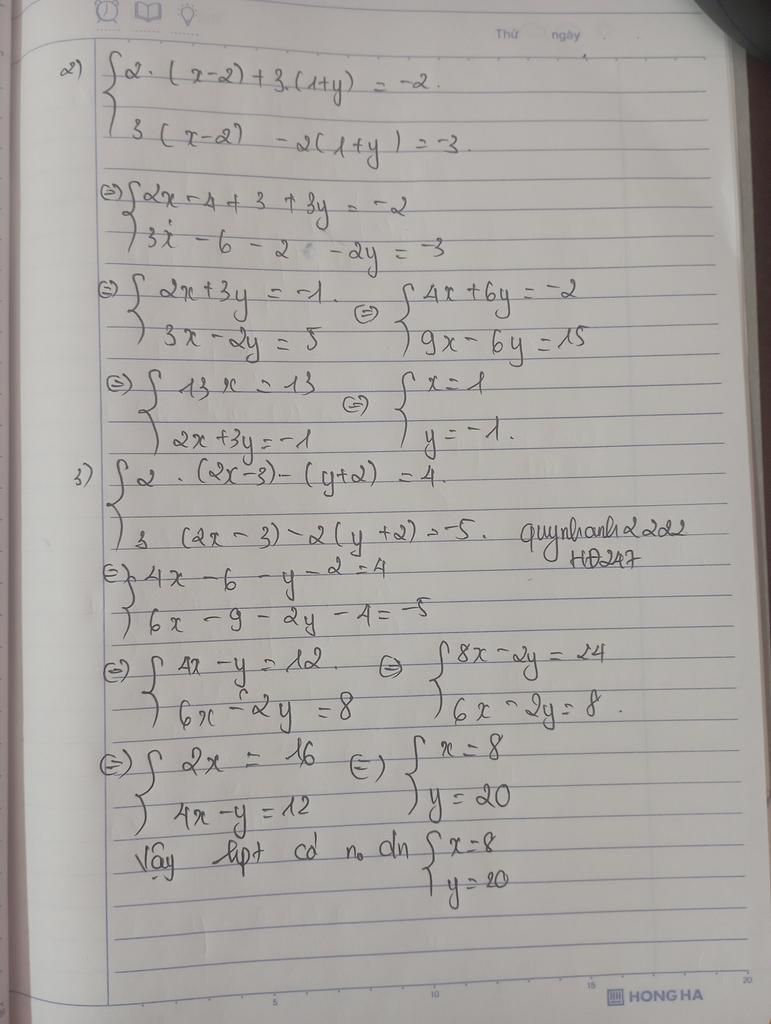 Thứ ngày
2) { 2. (x-2) + 3.(1+y) = -2.
3 (x-2) - 2(1+y) = -3.
⇔ { 2x - 4 + 3 + 3y = -2
3x - 6 - 2 - 2y = -3
⇔ { 2x+3y = -1. ⇔ { 4x+6y = -2
3x - 2y = 5 9x - 6y = 15
⇔ { 13x = 13 ⇔ { x = 1
2x+3y = -1 y = -1.
3) { 2. (2x-3) - (y+2) = 4.
3 (2x - 3) - 2(y+2) = -5. quynhanh2222
HĐ247
⇔ { 4x - 6 - y - 2 = 4
6x - 9 - 2y - 4 = -5
⇔ { 4x - y = 12. ⇔ { 8x - 2y = 24
6x - 2y = 8 6x - 2y = 8.
⇔ { 2x = 16 ⇔ { x = 8
4x - y = 12 y = 20
Vậy hpt có n0 dn { x = 8
y = 20
5 10 15 20
HONG HA